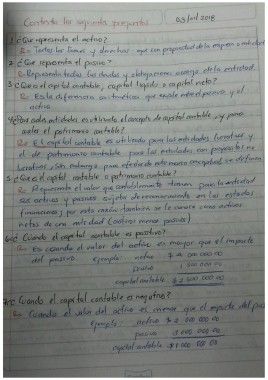 Contesta las siguientes preguntas 03/oct/2018
1.- ¿Que representa el activo?
R= Todos los bienes y derechos que son propiedad de la empresa o entidad
2. ¿Que representa el pasivo?
R= Representa todas las deudas y obligaciones a cargo de la entidad
3.- ¿Que es el capital contable, capital liquido o capital neto?
R= Es la diferencia aritmetica que existe entre el pasivo y el
activo
4.- ¿Para cada entidades es utilizado el concepto de capital contable y para
cuales el patrimonio contable?
R= El capital contable es utilizado para las entidades lucrativas y
el de patrimonio contable para las entidades con propositos no
lucrativos. Sin embargo, para efectos de este marco conceptual, se definen
5.- ¿Que es el capital contable o patrimonio contable?
R= Representa el valor que contablemente tienen para la entidad
sus activos y pasivos sujetos de reconocimiento en los estados
financieros; por esta razón también se le conoce como activos
netos de una entidad (activos menos pasivos)
6.- ¿Cuando el capital contable es positivo?
R= Es cuando el valor del activo es mayor que el importe
del pasivo Ejemplo: activo
pasivo 1 000 000.00
capital contable
7.- ¿Cuando el capital contable es negativo?
R= Cuando el valor del activo es menor que el importe del pasivo
Ejemplo: activo
pasivo
capital contable